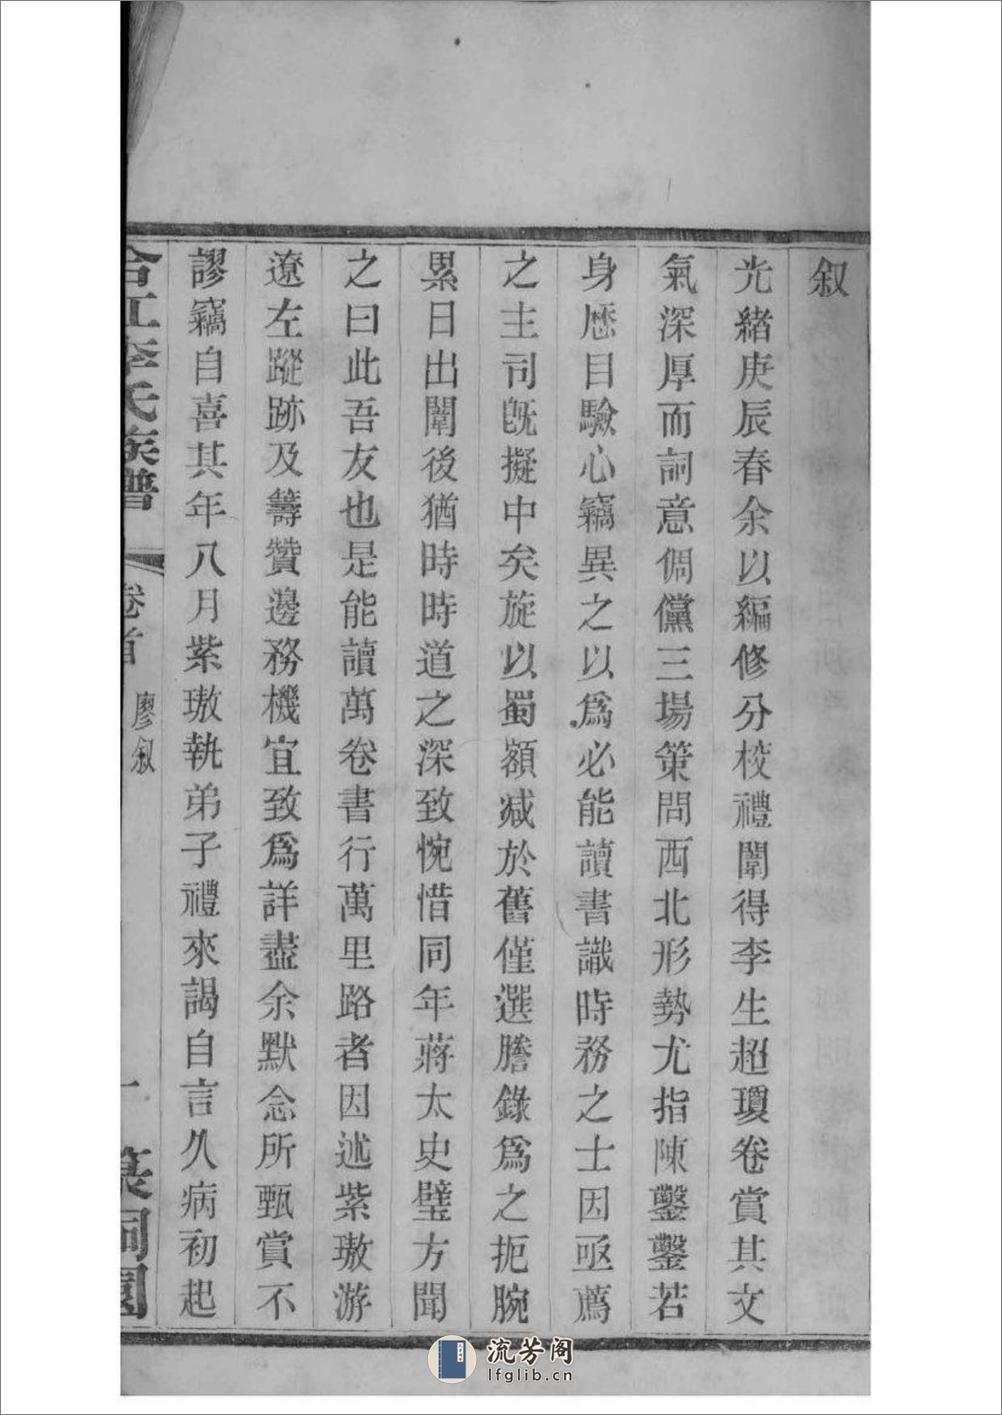 叙
光緒庚辰春余以編修分校禮闈得李生超瓊卷賞其文
氣深厚而詞意倜儻三場策問西北形勢尤指陳鑿鑿若
身歷目驗心竊異之以爲必能讀書識時務之士因亟薦
之主司旣擬中矣旋以蜀額減於舊僅選謄錄爲之扼腕
累日出闈後猶時時道之深致惋惜同年蔣太史璧方聞
之曰此吾友也是能讀萬卷書行萬里路者因述紫璈游
遼左蹤跡及籌贊邊務機宜致爲詳盡余默念所甄賞不
謬竊自喜其年八月紫璈執弟子禮來謁自言久病初起
合江李氏族譜 卷首 廖叙 一
流芳阁
lfglib.cn